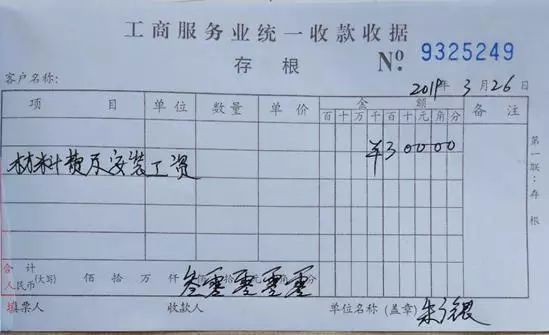 工商服务业统一收款收据
存根 № 9325249
客户名称: 2019年3月26日
项目 单位 数量 单价 金额 备注
百十万千百十元角分
材料费及安装工资 ¥30000
第一联:存根
合计人民币(大写) 佰拾万仟佰拾元角分 叁零零零零
填票人 收款人 单位名称(盖章)